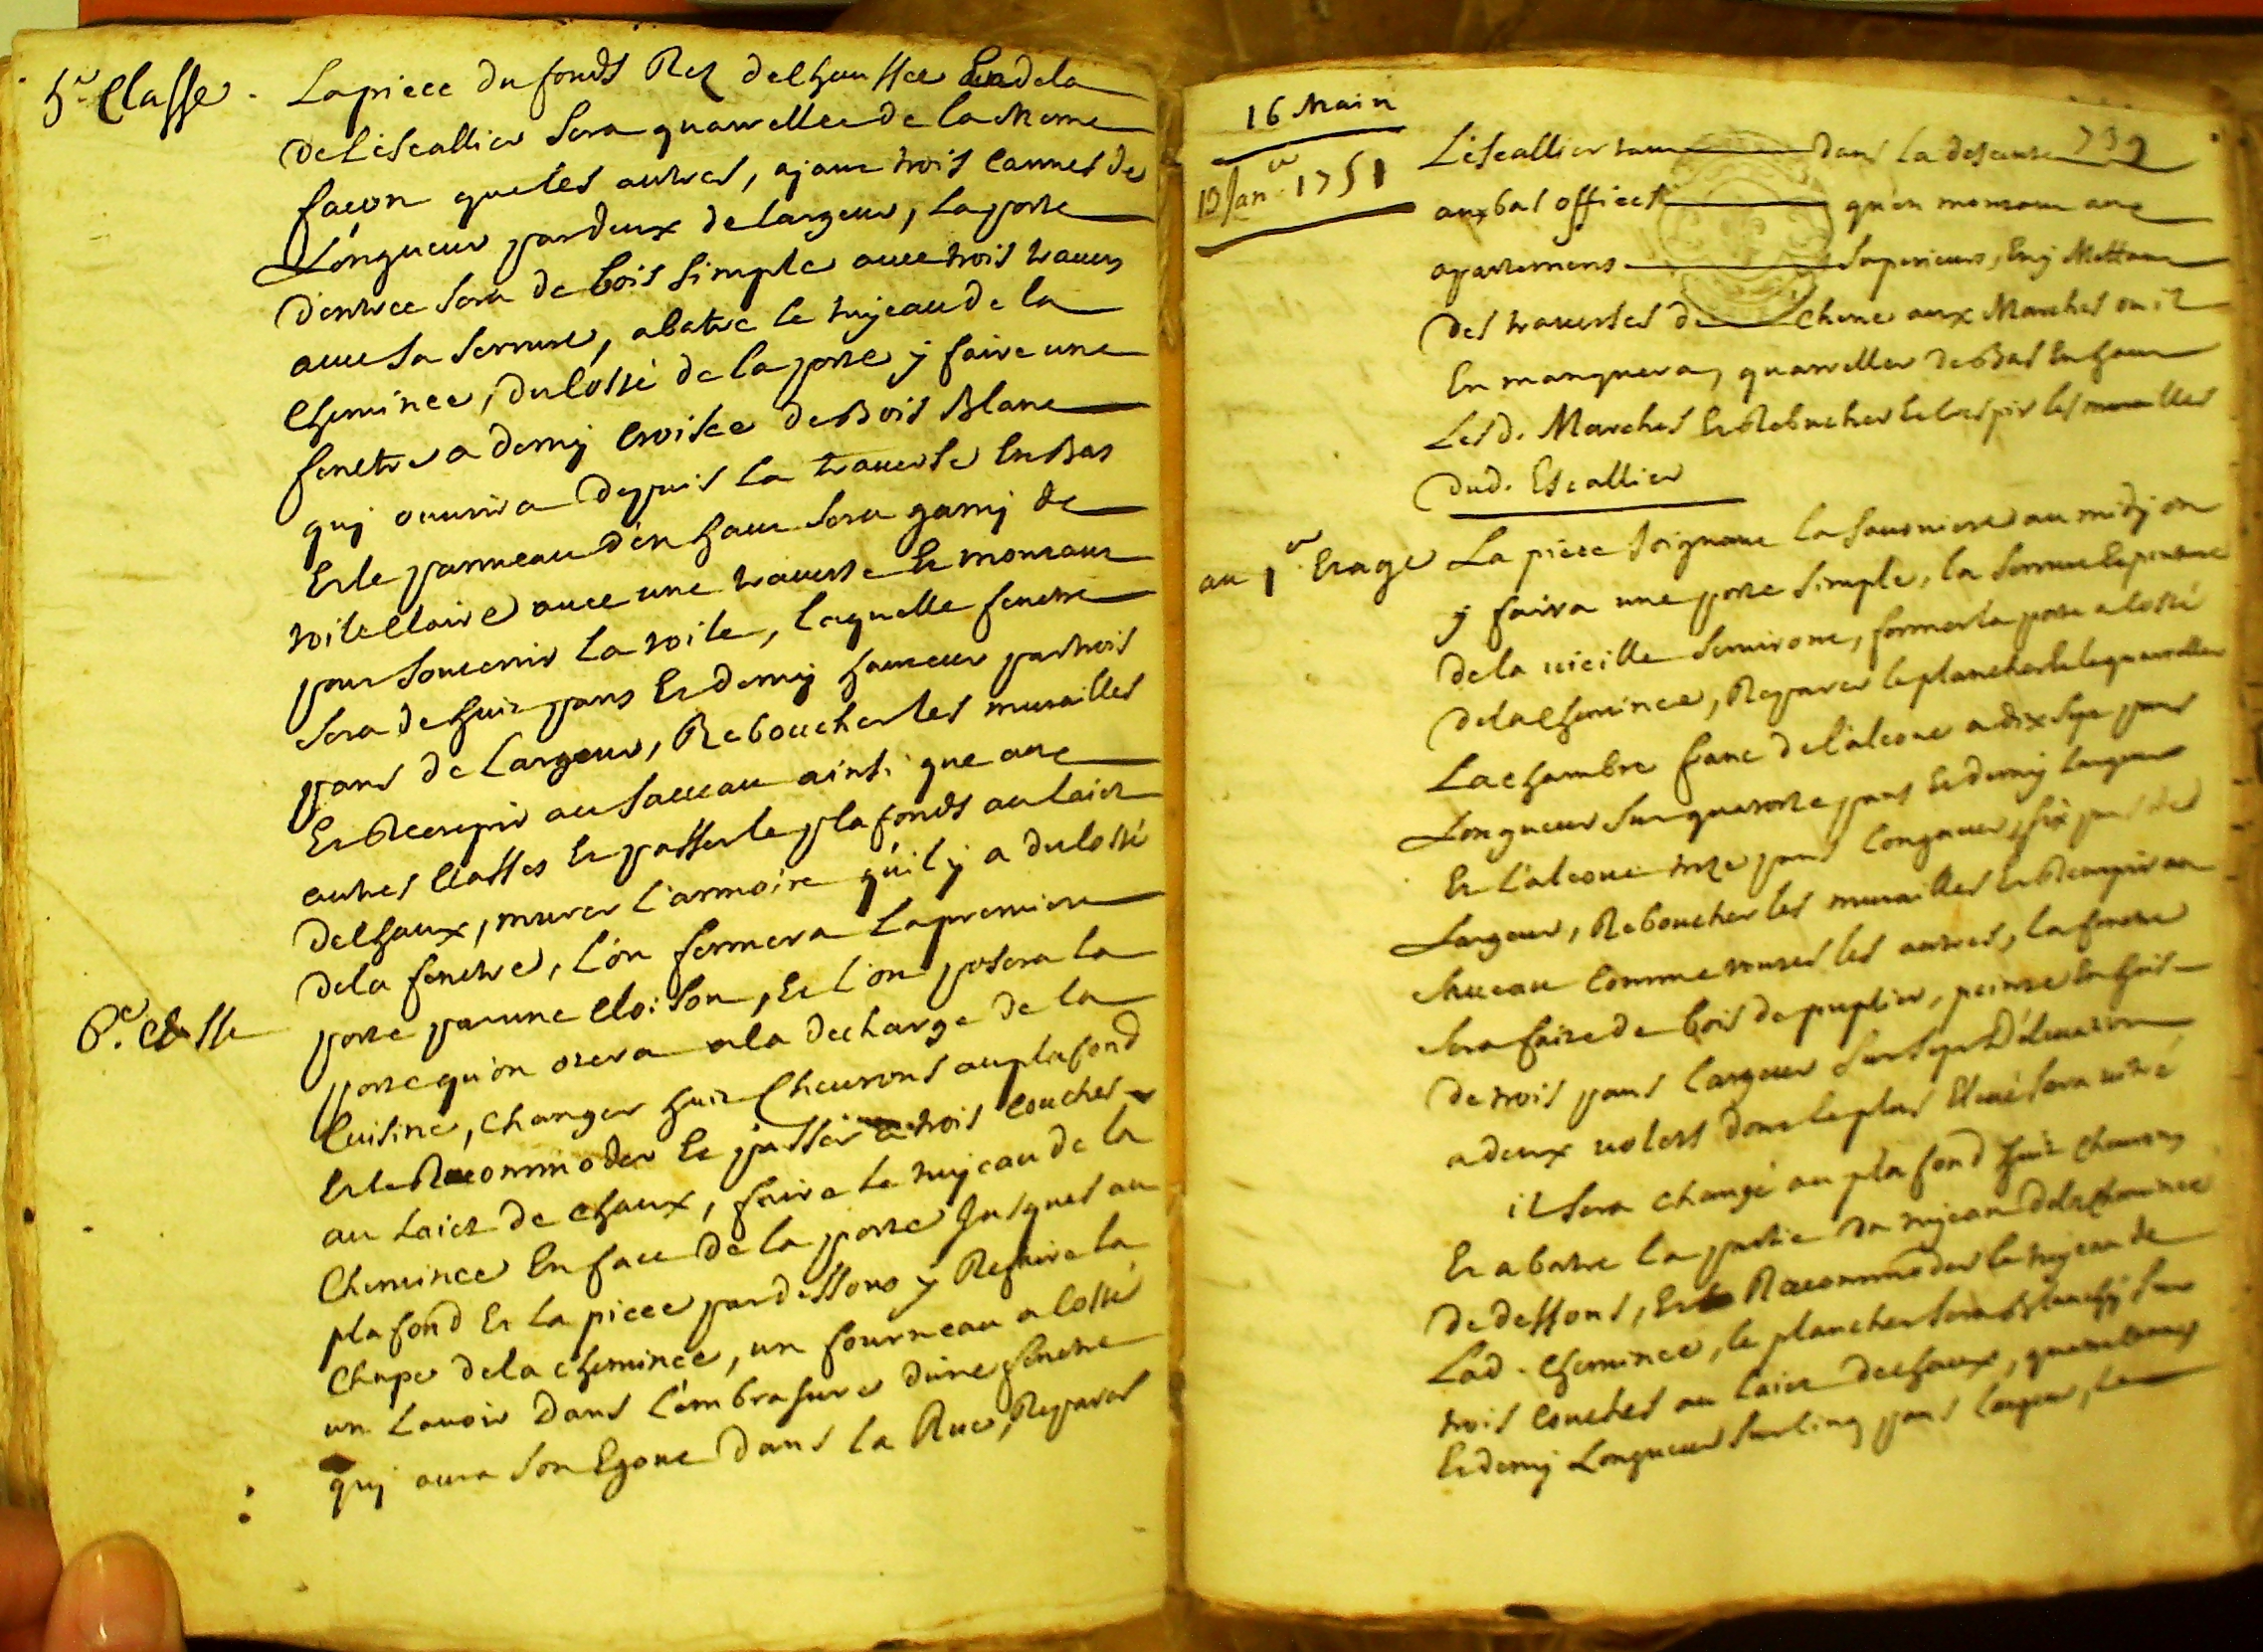 5e. Classe. La piece du fonds Rez de chaussee Er de la
de L'escallier sera quarrellee de la meme
facon que les autres, ajant trois cannes de
Longueur par deux de largeur, la porte
d'entree sera de bois simple avec trois travers
avec sa serrure, abatre le tuyeau de la
Cheminee, du costé de la porte y faire une
fenetre a demy croisee de Bois Blanc
quj ouvrira depuis la traverse En Bas
Er le panneau d'en haut sera garnj de
toile claire avec une traverse Er montant
pour soutenir la toile, laquelle fenetre
sera de huit pans Er demy hauteur par trois
pans de Largeur, Reboucher les murailles
Er Recrepir au sauceau ainsi que aux
autres Classes Er passer le plafonds au laict
de chaux, murer l'armoire qu'il y a du costé
de la fenetre, l'on fermera la premiere
6e. Classe porte par une cloison, Er l'on posera la
porte qu'on otera a la decharge de la
Cuisine, changer huit Cheurons au plafond
Er le Racommoder Er passer a trois couches
au Laict de chaux, faire le tuyeau de la
Cheminee En face de la porte Jusques au
plafond Er la piece par dessous y Refaire la
Chape de la cheminée, un fourneau a costé
un Lavoir dans l'embrasure d'une fenetre
quj aura son Egout dans la Rue, Reparer
16 Main
19 Janr. 1751
739
L'escallier tant dans la descente
aux bas offices qu'en montant aux
apartemens superieurs, En y Mettant
des traverses de chene aux Marches ou il
En manquera, quarreller de Bas En haut
Lesd. Marches Er Reboucher Er Crespir les murailles
dud. Escallier
au 1er. Etage La piece Joignant la sauoniere au midy on
y faira une porte simple, la serrure Er penture
de la vieille serviront, fermer la porte a costé
de la cheminee, Reparer le plancher Er le quarreller
La chambre franc de l'alcove a dix sept pans
Longueur sur quatorze pans Er demy largeur
Er L'alcove treze pans longueur, six pans de
Largeur, Reboucher les murailles Er Recrepir au
sauceau comme toutes les autres, la fenetre
sera faite de bois de puplier, peinte En gris
de trois pans largeur sur sept D'elevation
a deux volets dont le plus Elevé sera vitré
il sera changé au plafond huit cheurons
Er abatre la partie du tuyeau de la cheminee
de dessous, Er Racommoder le tuyeau de
Lad. cheminee, le plancher sera Blanchy sur
trois couches au laict de chaux,
Er demy Longueur sur Cinq pans largeur, le